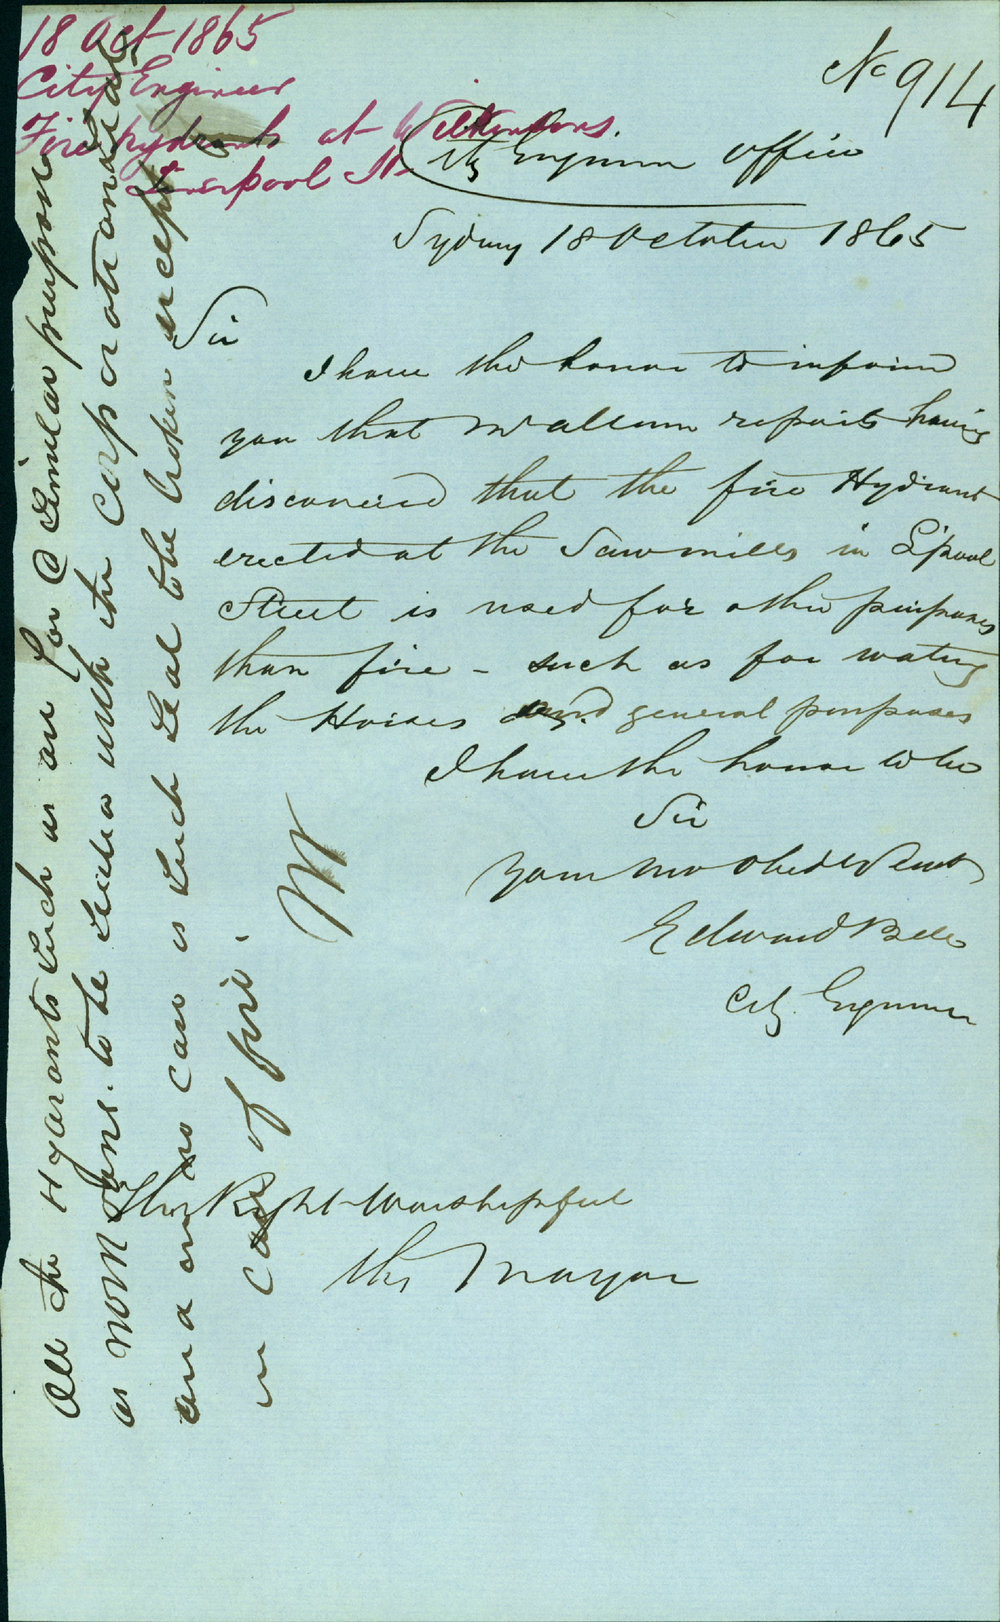 18 Oct 1865
City Engineer
Fire hydrants at Wilkinsons.
Liverpool St
No 914
City Engineer Office
Sydney 18 October 1865
Sir
I have the honor to inform
you that Mr allum reports having
discovered that the fire Hydrant
erected at the Sawmills in L'pool
Street is used for other purposes
than fire - such as for watering
the Horses and general purposes
I have the honor to be
Sir
Your mo obedt Servt
Edward Bell
City Engineer
The Right Worshipful
the Mayor
All the Hydrants such as are for @ similar purpose
as now. to be sealed with the Corporation Seal
and in no case is such Seal to be broken except
in case of fire.